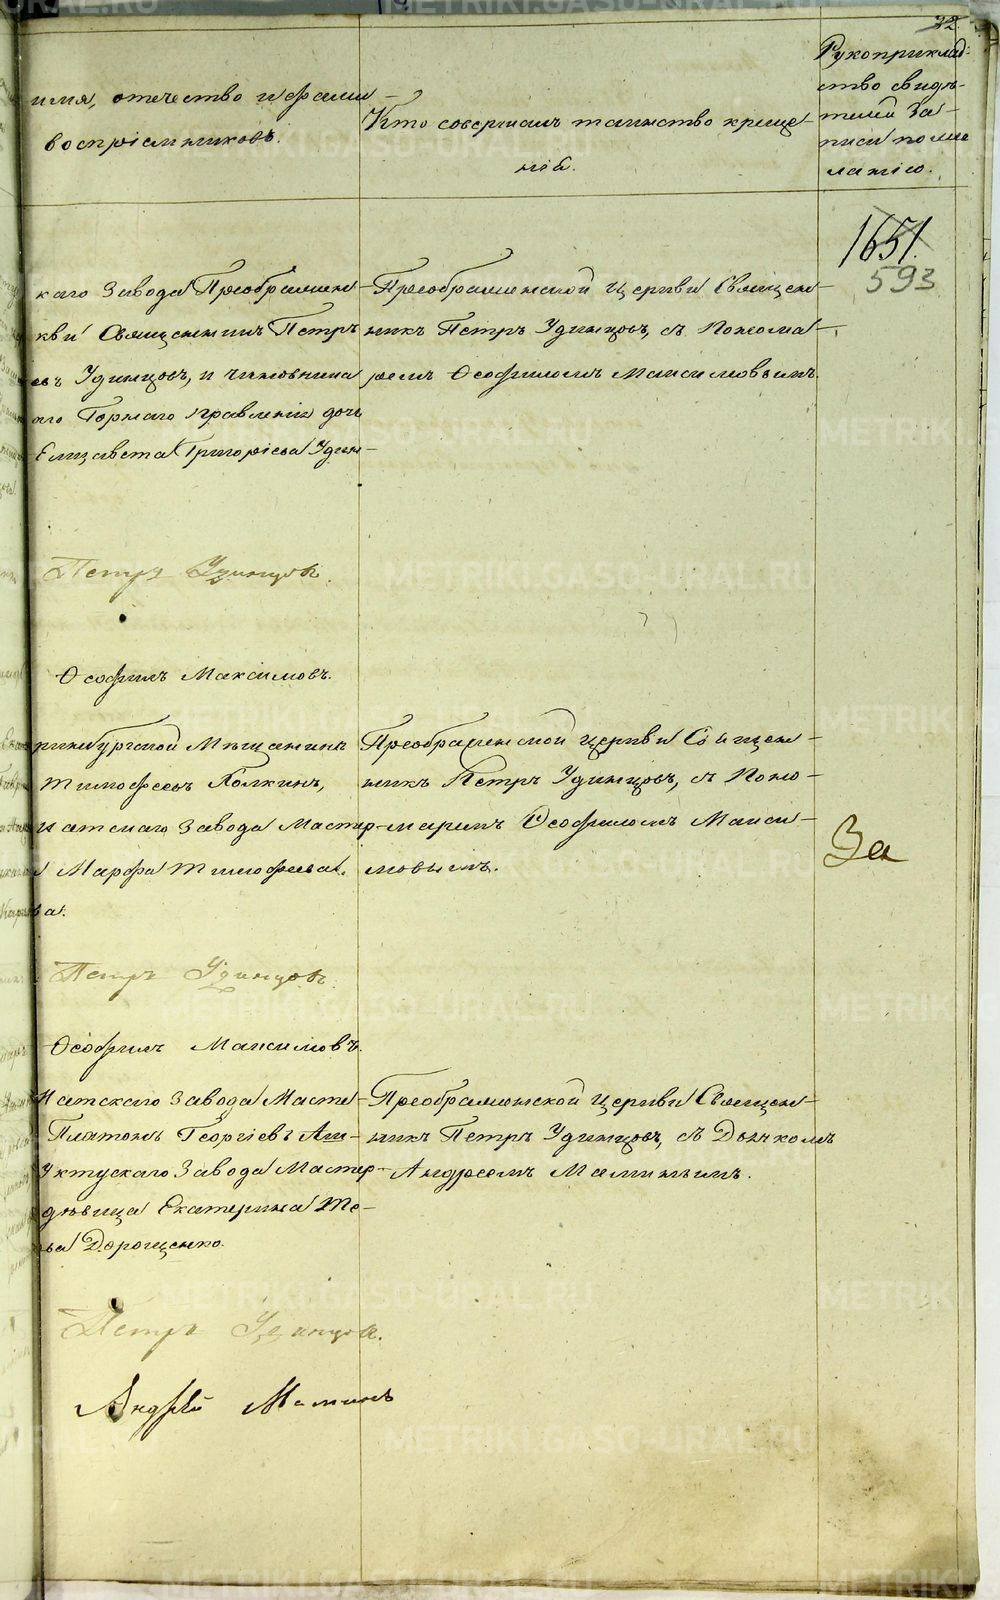 32.
имя, отечество и фами-
воспріемниковъ.
Кто совершалъ таинство креще-
нія.
Рукоприклад-
ство свидѣ-
телей за-
писи по же-
ланію.
1651.
593
каго Завода Преображен-
кви Священникъ Петръ
евъ Удинцовъ, и чиновника
аго Горнаго правленія дочь
Елизавета Григоріева Удин-
Преображенской Церкви Священ-
никъ Петръ Удинцовъ, съ Понома-
ремъ Ѳеофиломъ Максимовымъ.
Петръ Удинцовъ.
Ѳеофилъ Максимовъ.
ринбургской Мѣщанинъ
Тимофеевъ Полкинъ,
Исетскаго Завода Мастер-
Марфа Тимофеева
ва.
Преображенской Церкви Священ-
никъ Петръ Удинцовъ, съ Поно-
маремъ Ѳеофиломъ Макси-
мовымъ.
За
Петръ Удинцовъ.
Ѳеофилъ Максимовъ.
Исетскаго Завода Масте-
Платонъ Георгіевъ
Уктускаго Завода Мастер-
дѣвица Екатерина
ва Дорощенко.
Преображенской Церкви Священ-
никъ Петръ Удинцовъ, съ Дьячкомъ
Андреемъ Маминымъ.
Петръ Удинцовъ.
Андрей Маминъ
METRIKI.GASO-URAL.RU